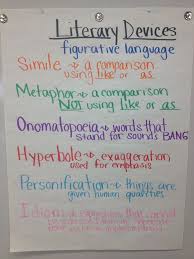 Literary Devices
figurative language
Simile → a comparison
using like or as
Metaphor → a comparison
NOT using like or as
Onomatopoeia → words that
stand for sounds BANG
Hyperbole → exaggeration
used for emphasis
Personification → things are
given human qualities
Idiom